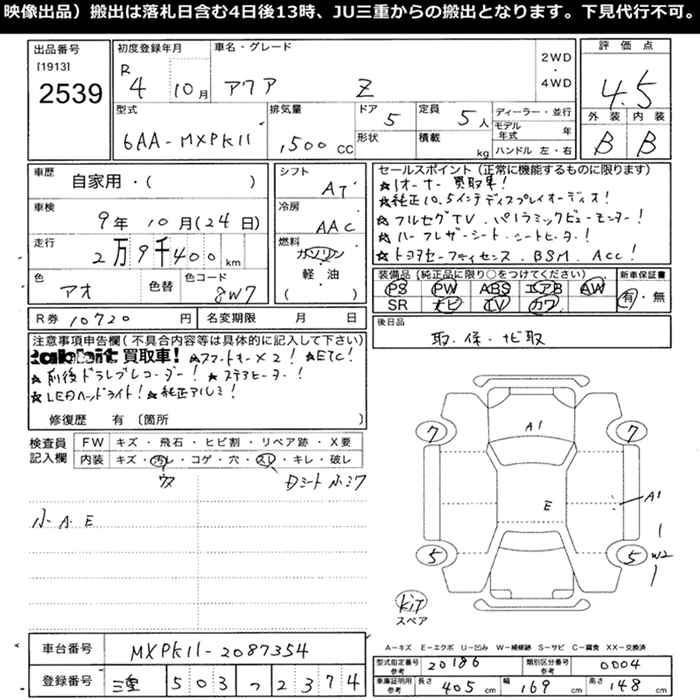 映像出品）搬出は落札日含む4日後13時、JU三重からの搬出となります。下見代行不可。
出品番号
[1913]
2539
初度登録年月
R
4 10月
車名・グレード
アクア Z
2WD
・
4WD
評価点
4.5
型式
6AA-MXPK11
排気量
1,500 CC
ドア
5
形状
定員
5人
積載
kg
ディーラー・並行
モデル年式 年
ハンドル 左・右
外装 内装
B B
車歴
自家用・( )
車検
9年10月(24日)
走行
2万9千400km
色
アオ
色替
色コード
8W7
シフト
AT
冷房
AAC
燃料
ガソリン
軽・油
( )
セールスポイント(正常に機能するものに限ります)
★1オーナー買取車!
★純正10.5インチディスプレイオーディオ!
★フルセグTV.パノラミックビューモニター!
★ハーフレザーシート.シートヒーター!
★トヨタセーフティセンス.BSM.ACC!
装備品(純正品に限り○をつけてください)
PS PW ABS エアB AW
SR ナビ TV カワ
新車保証書
有・無
R券 10720 円
名変期限 月 日
後日品
取.保.ナビ取
注意事項申告欄(不具合内容等は具体的に記入して下さい)
Rabbit 買取車! ★スマートキー×2! ★ETC!
★前後ドラレコーダー! ★ステアヒーター!
★LEDヘッドライト! ★純正アルミ!
修復歴 有 〔箇所 〕
検査員
記入欄
FW キズ・飛石・ヒビ割・リペア跡・X要
内装 キズ・汚レ・コゲ・穴・スレ・キレ・破レ
ウス
Dシート小シワ
小A E
7 7
A1
E
A1
5 5
W2
KIT
スペア
A－キズ E－エクボ U－凹み W－補修跡 S－サビ C－腐食 XX－交換済
車台番号
MXPK11-2087354
登録番号
三重 503 つ 2374
型式指定番号
参考
20186
類別区分番号
参考
0004
車庫証明用
参考
長さ 405 cm
幅 169 cm
高さ 148 cm